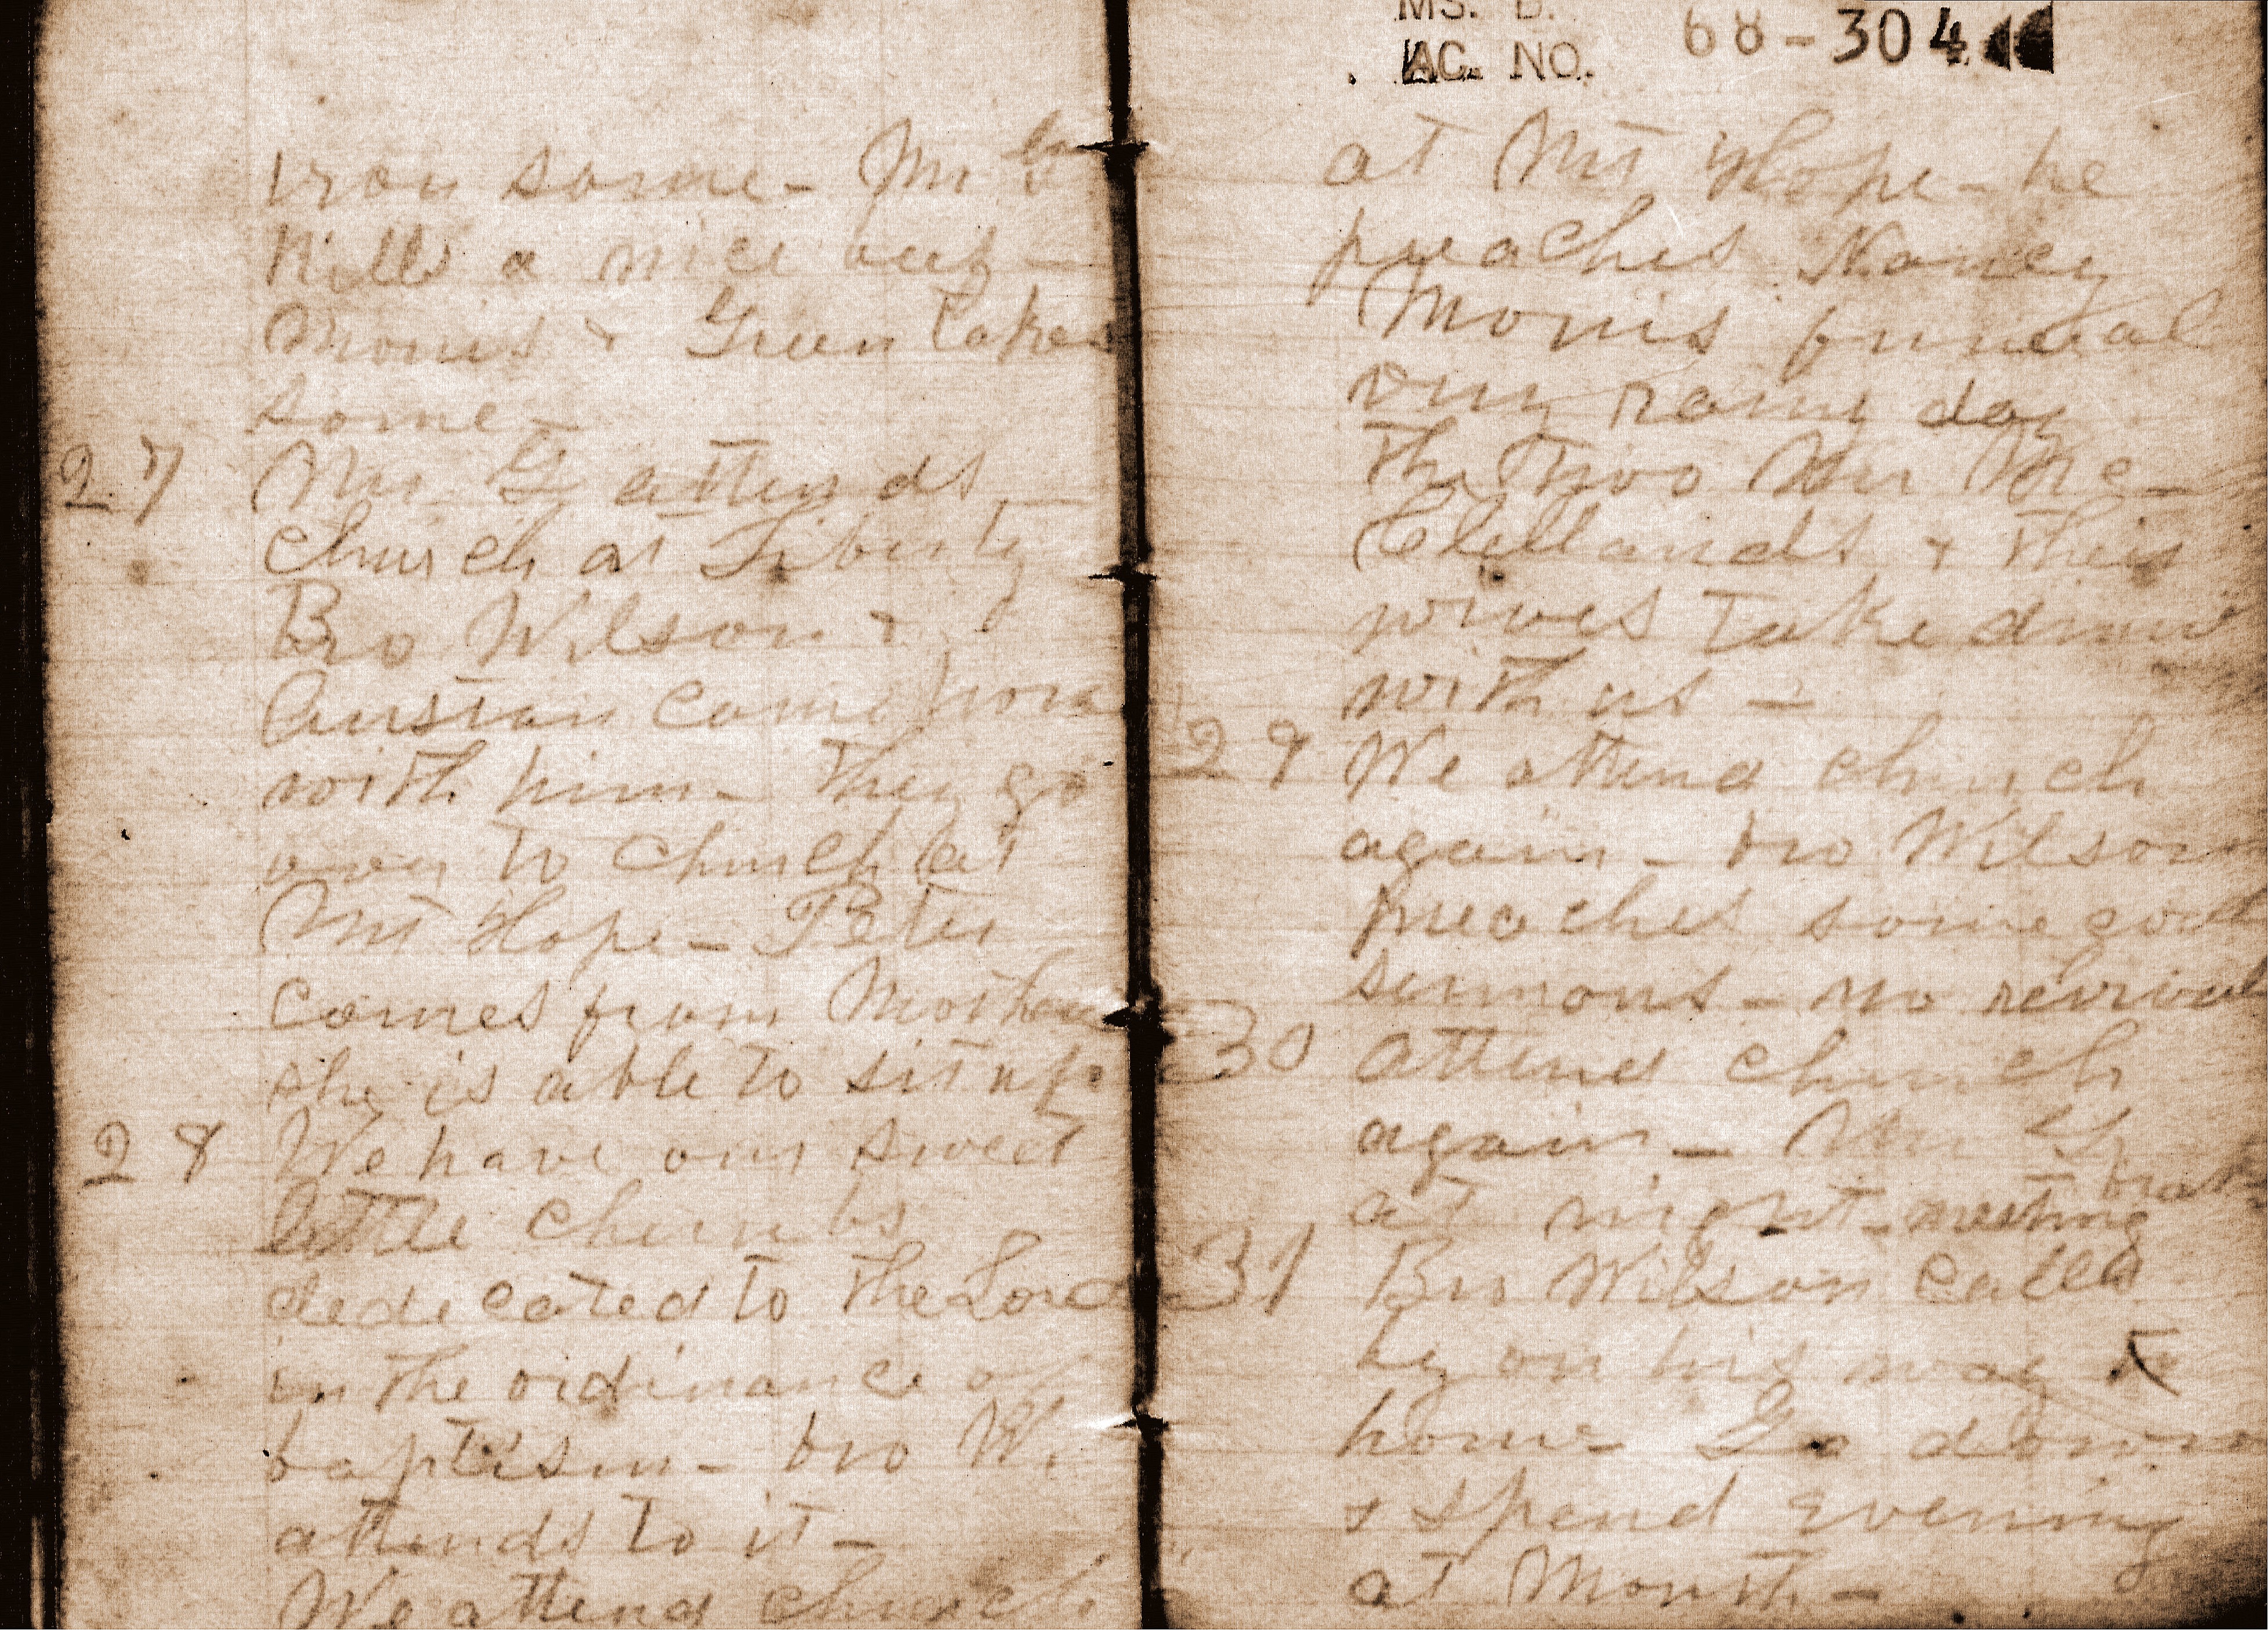 iron some - Mr G
kills a nice beef -
Morris & Green takes
some -
27 Mr G attends
church at Liberty
Bro Wilson &
Austan come home
with him - they go
over to church at
Mt Hope - Peter
comes from Mother
she is able to sit up
28 We have our sweet
little cherubs
dedicated to the Lord
in the ordinance of
baptism - bro W.
attends to it -
We attend church
MS. B.
AC. NO. 68-304
at Mt Hope - he
preaches Nancy
Morris funeral
very rainy day
The two Mr Mc-
Clellands & their
wives take dinner
with us -
29 We attend church
again - bro Wilson
preaches some good
sermons - no revival
30 attend church
again - Mr G
at night - meeting
31 Bro Wilson calls
by on his way
home - Go down
& spend evening
at